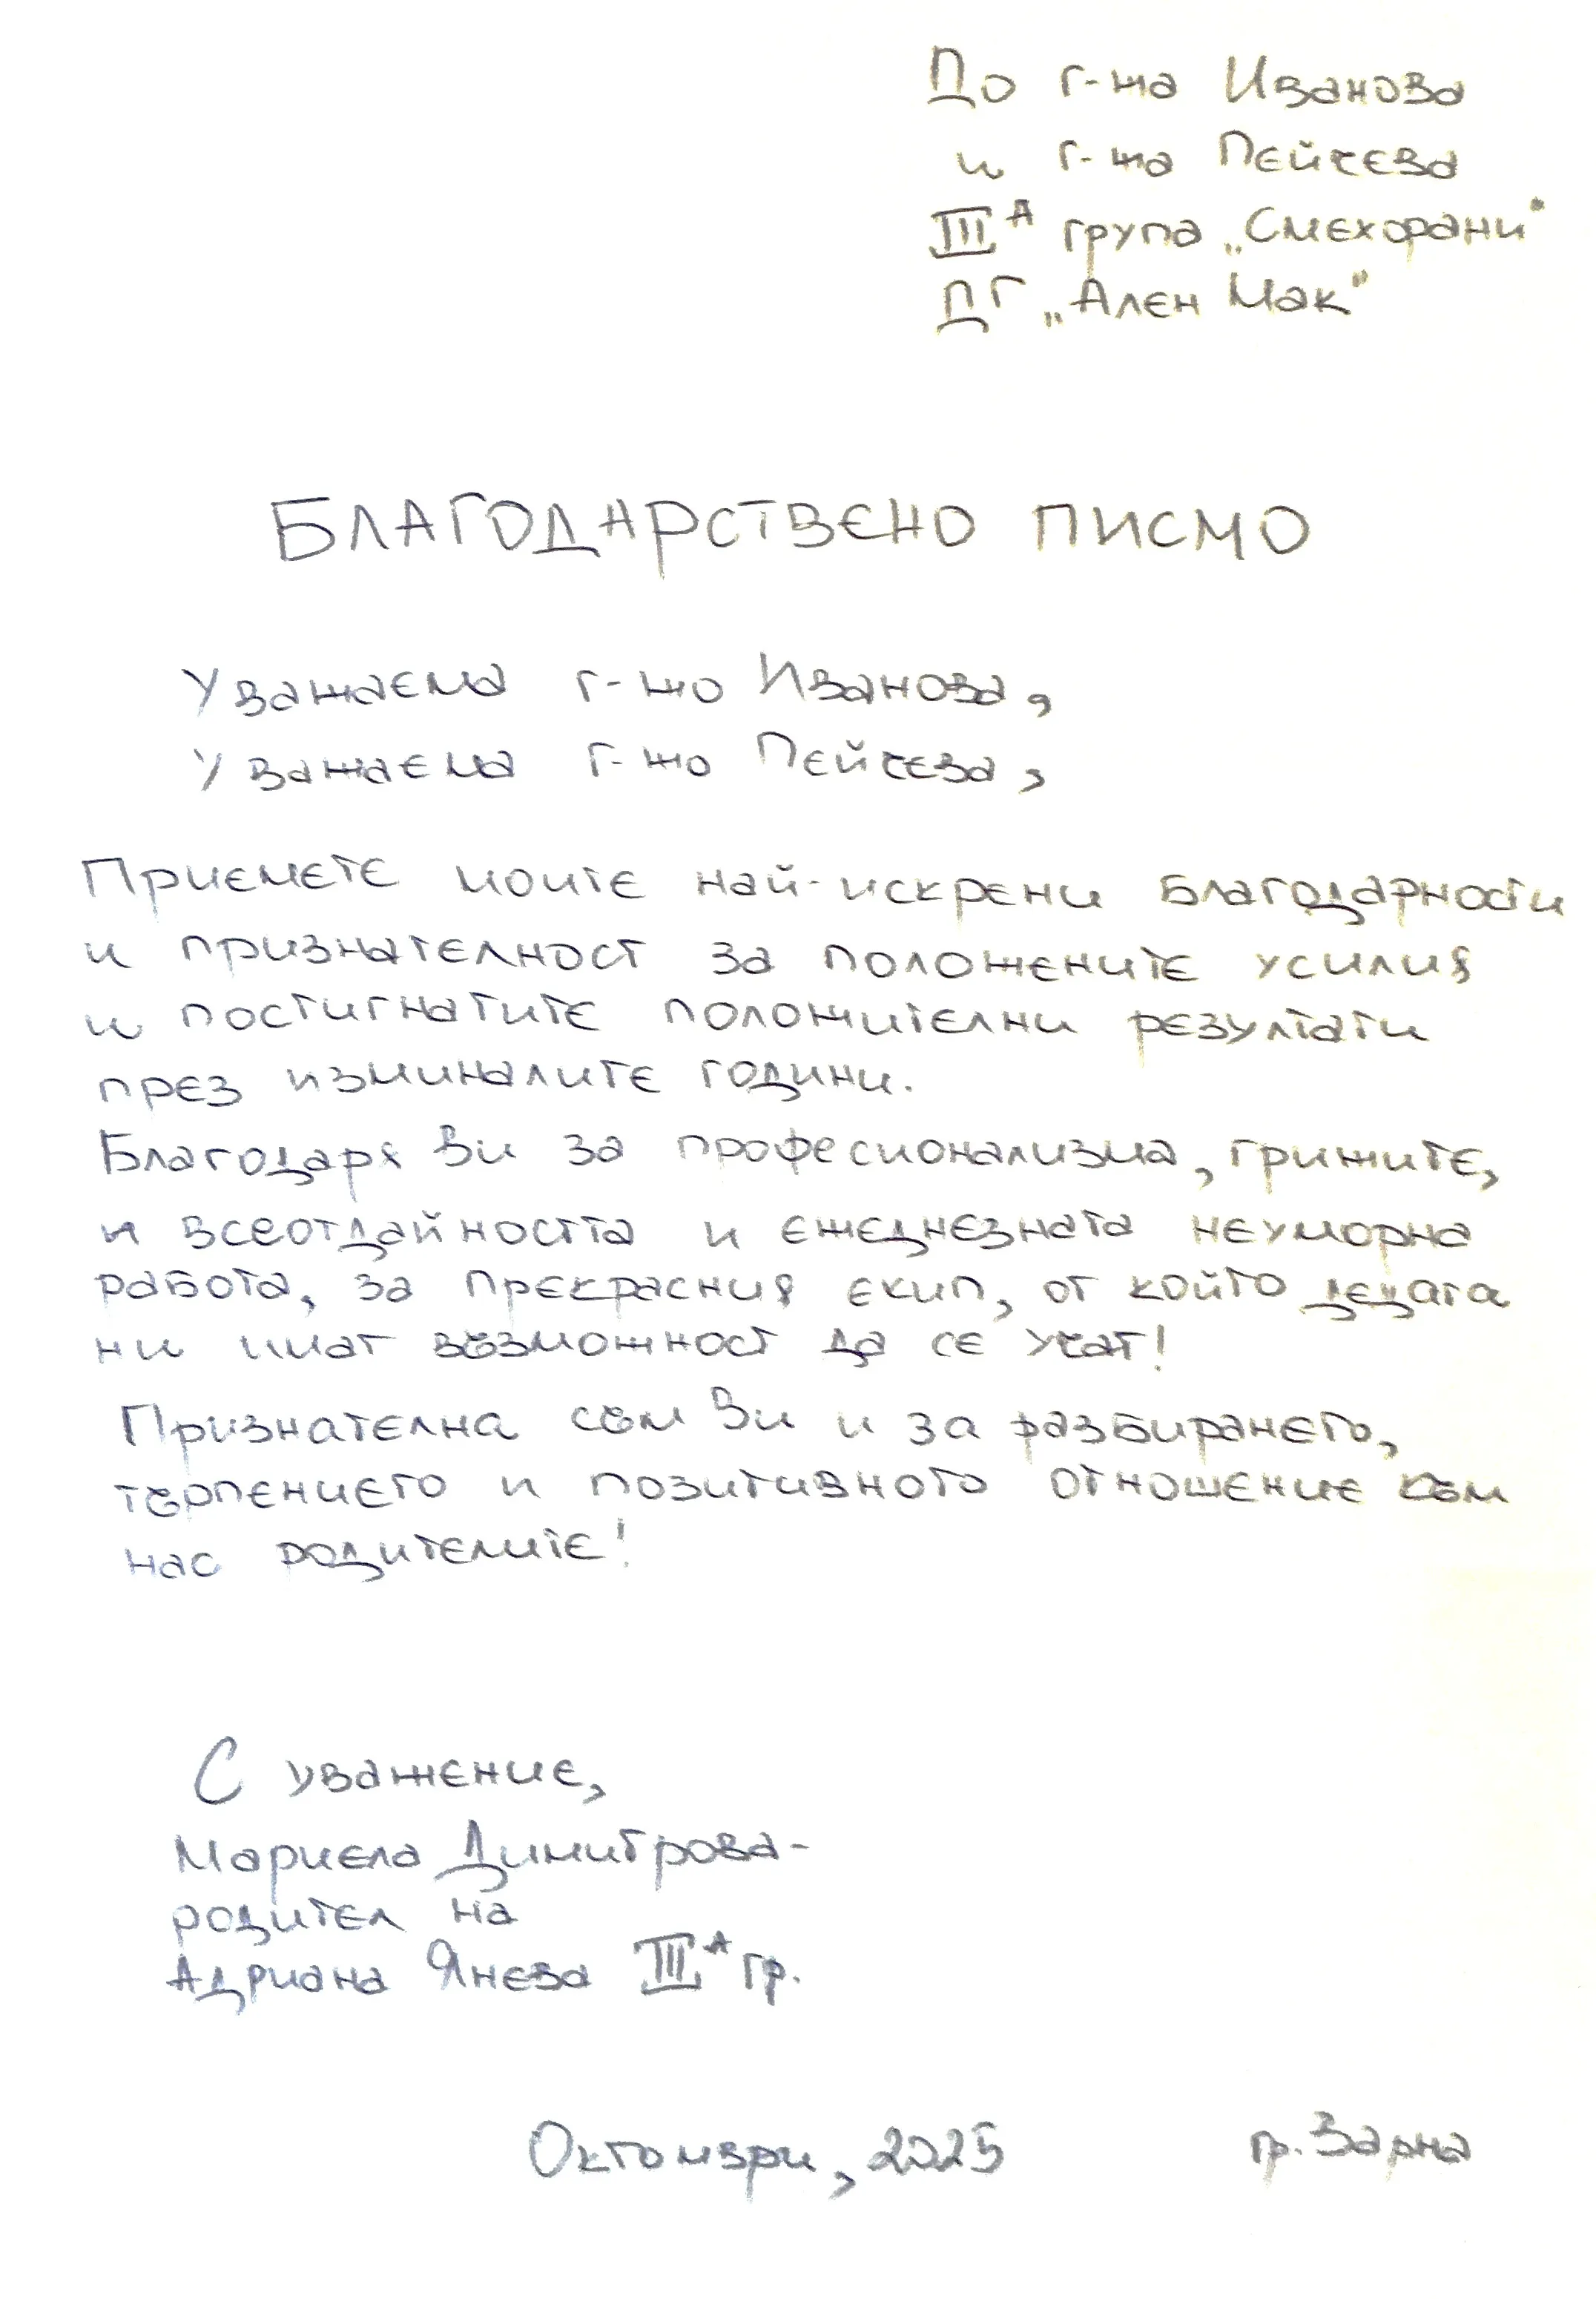 До г-жа Иванова
и г-жа Пейчева
III А група „Смехорани"
ДГ „Ален Мак"
БЛАГОДАРСТВЕНО ПИСМО
Уважаема г-жо Иванова,
Уважаема г-жо Пейчева,
Приемете моите най-искрени благодарности
и признателност за положените усилия
и постигнатите положителни резултати
през изминалите години.
Благодаря Ви за професионализма, грижите,
и всеотдайността и ежеднезната неуморна
работа, за прекрасния екип, от който децата
ни имат възможност да се учат!
Признателна съм Ви и за разбирането,
търпението и позитивното отношение към
нас родителите!
С уважение,
Мариела Димитрова-
родител на
Адриана Янева III А гр.
Октомври, 2025 гр. Варна